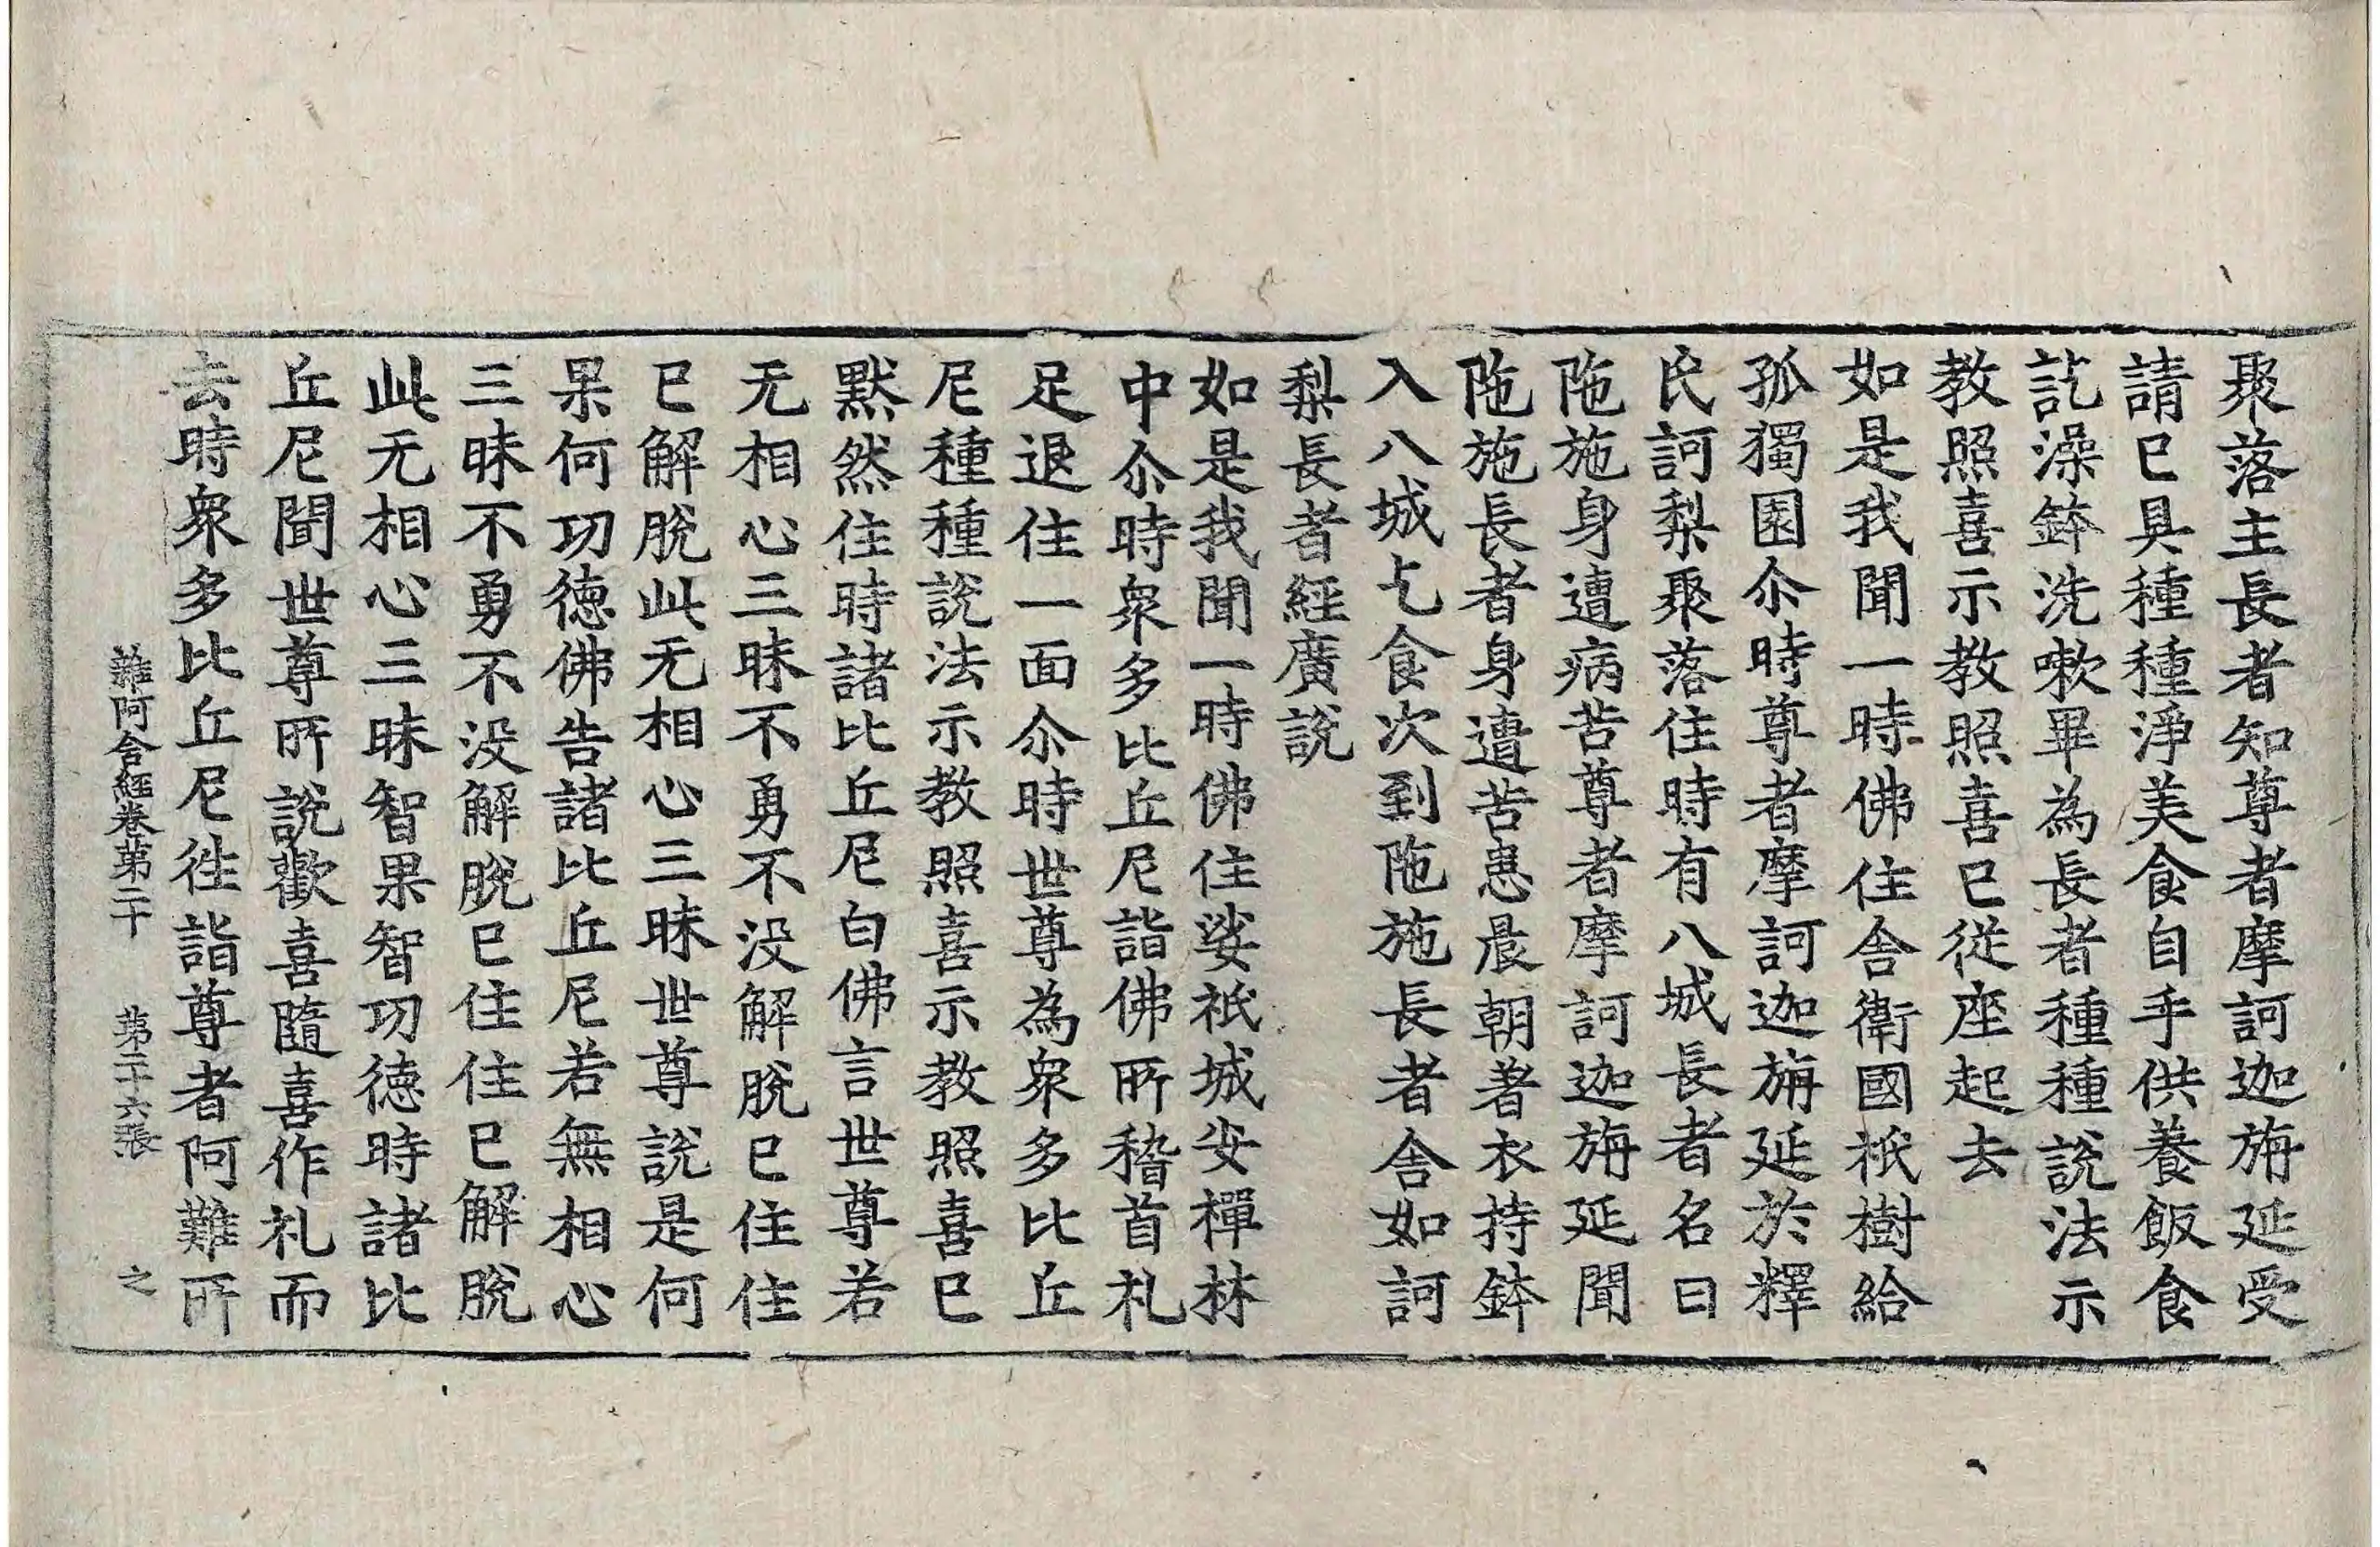 聚落主長者知尊者摩訶迦旃延受
請已具種種淨美食自手供養飯食
訖澡鉢洗嗽畢為長者種種說法示
教照喜示教照喜已從座起去
如是我聞一時佛住舍衛國祇樹給
孤獨園尒時尊者摩訶迦旃延於釋
氏訶梨聚落住時有八城長者名曰
陁施身遭病苦尊者摩訶迦旃延聞
陁施長者身遭苦患晨朝著衣持鉢
入八城乞食次到陁施長者舍如訶
梨長者經廣說
如是我聞一時佛住娑祇城安禪林
中尒時衆多比丘尼詣佛所稽首礼
足退住一面尒時世尊為衆多比丘
尼種種說法示教照喜示教照喜已
黙然住時諸比丘尼白佛言世尊若
无相心三昧不勇不没解脫已住住
已解脫此无相心三昧世尊說是何
果何功徳佛告諸比丘尼若無相心
三昧不勇不没解脫已住住已解脫
此无相心三昧智果智功徳時諸比
丘尼聞世尊所說歡喜隨喜作礼而
去時衆多比丘尼往詣尊者阿難所
雜阿含經卷第二十 第二十六張 之